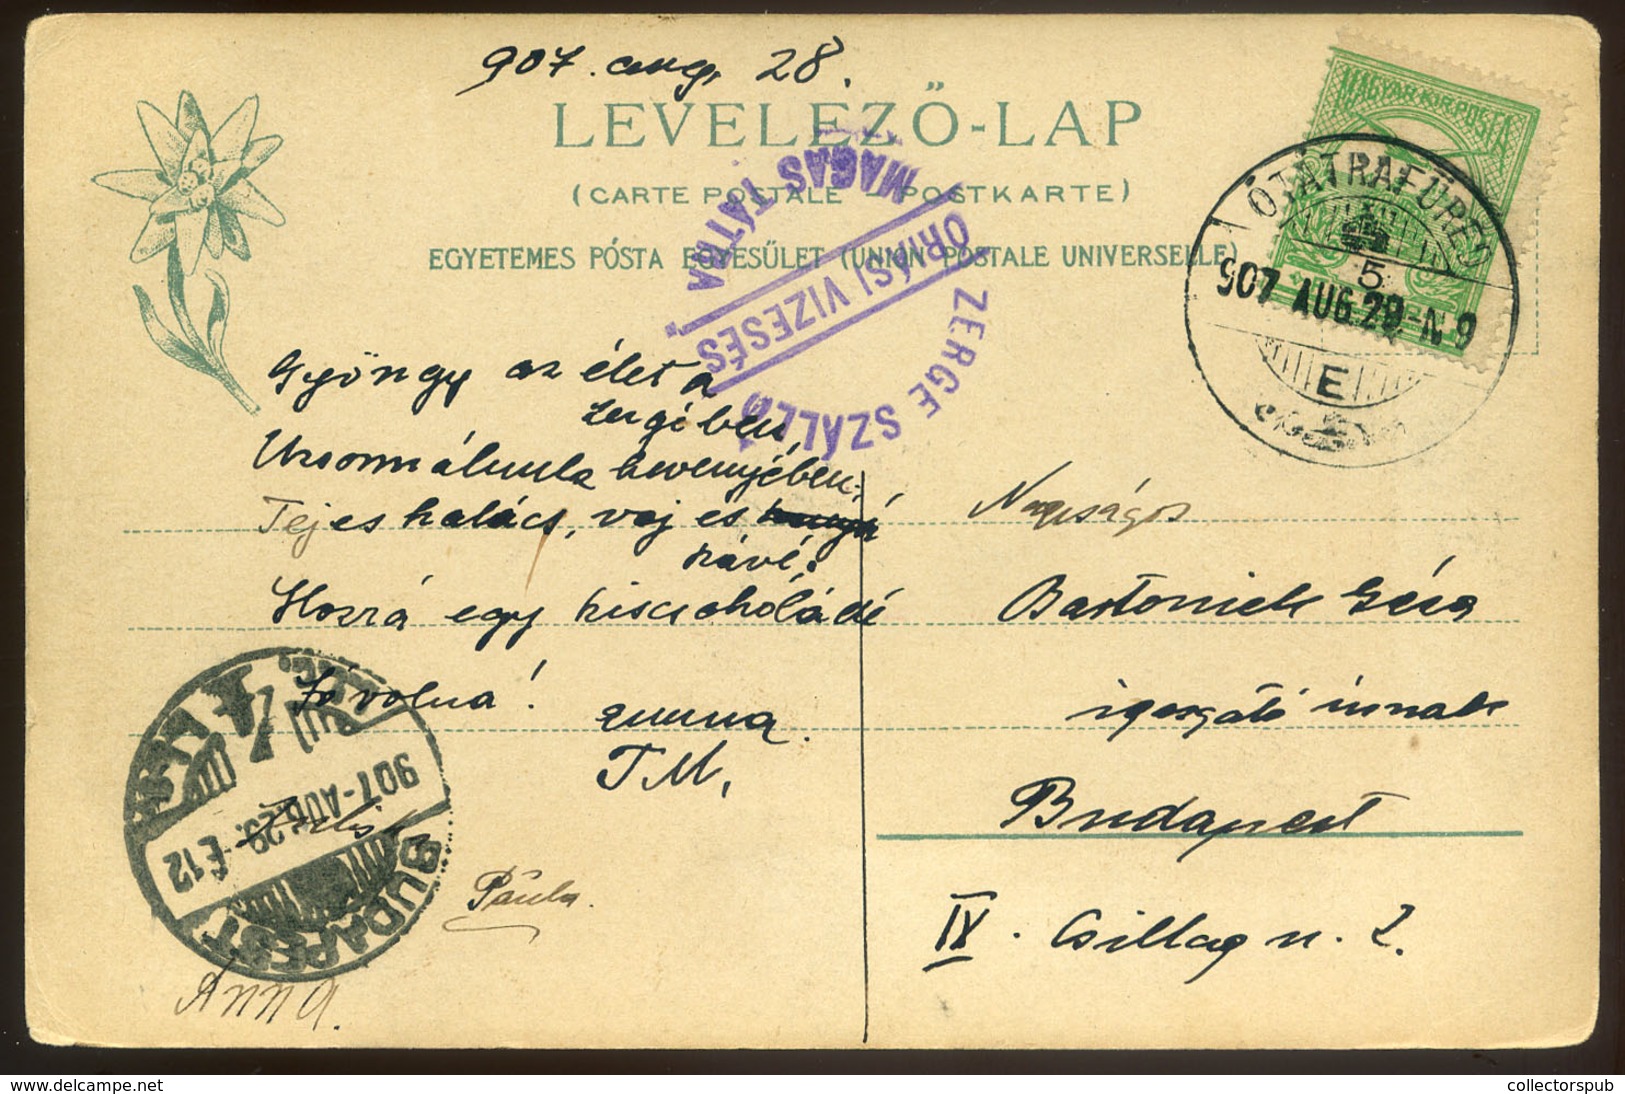 907. aug. 28.
LEVELEZŐ-LAP
(CARTE POSTALE – POSTKARTE)
EGYETEMES PÓSTA EGYESÜLET (UNION POSTALE UNIVERSELLE)
MAGYAR KIR. POSTA
ÓTÁTRAFÜRED
5
907 AUG. 29-N 9
E
MAGAS TÁTRA
"ÓRIÁSI VIZESÉS"
ZERGE SZÁLLÓ
Gyöngy az élet a
zergében,
Uzsonnálunk hevenyében:
Tejes kalács, vaj és
kávé.
Hozzá egy kis csokoládé
Jó volna!
T.M.
Paula.
Anna.
BUDAPEST
907-AUG. 29.-É 12
Nagyságos
Bartoniek Géza
igazgató úrnak
Budapest
IX. Csillag u. 2.
collectorspub